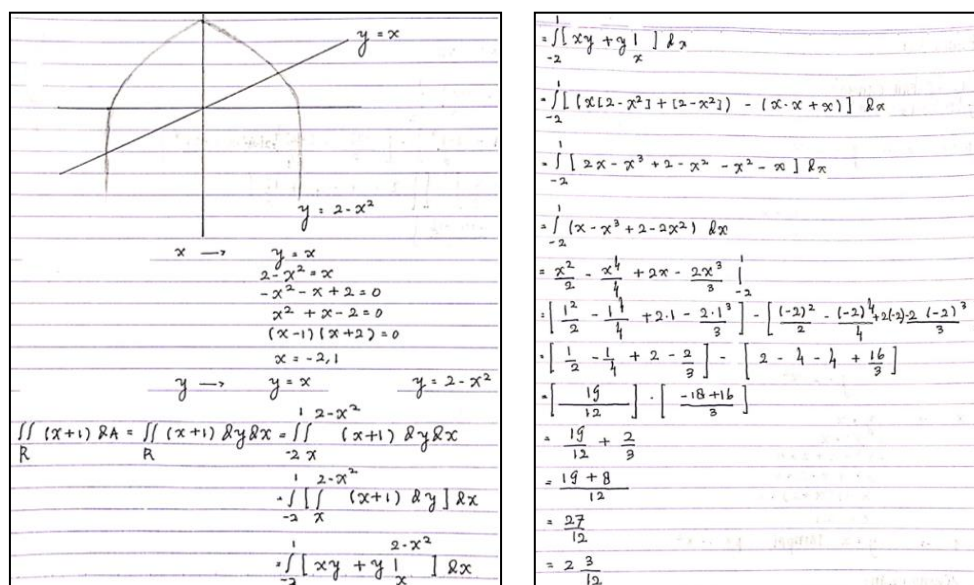 y = x
y = 2 - x²
x → y = x
2 - x² = x
-x² - x + 2 = 0
x² + x - 2 = 0
(x-1) (x+2) = 0
x = -2, 1
y → y = x y = 2 - x²
∬_R (x+1) dA = ∬_R (x+1) dy dx = ∫_{-2}^{1} ∫_{x}^{2-x²} (x+1) dy dx
= ∫_{-2}^{1} [ ∫_{x}^{2-x²} (x+1) dy ] dx
= ∫_{-2}^{1} [ xy + y |_{x}^{2-x²} ] dx
= ∫_{-2}^{1} [ xy + y |_{x} ] dx
= ∫_{-2}^{1} [ (x[2-x²] + [2-x²]) - (x·x + x) ] dx
= ∫_{-2}^{1} [ 2x - x³ + 2 - x² - x² - x ] dx
= ∫_{-2}^{1} (x - x³ + 2 - 2x²) dx
= x²/2 - x⁴/4 + 2x - 2x³/3 |_{-2}^{1}
= [ 1²/2 - 1⁴/4 + 2·1 - 2·1³/3 ] - [ (-2)²/2 - (-2)⁴/4 + 2(-2) - 2(-2)³/3 ]
= [ 1/2 - 1/4 + 2 - 2/3 ] - [ 2 - 4 - 4 + 16/3 ]
= [ 19/12 ] - [ (-18+16)/3 ]
= 19/12 + 2/3
= (19 + 8)/12
= 27/12
= 2 3/12